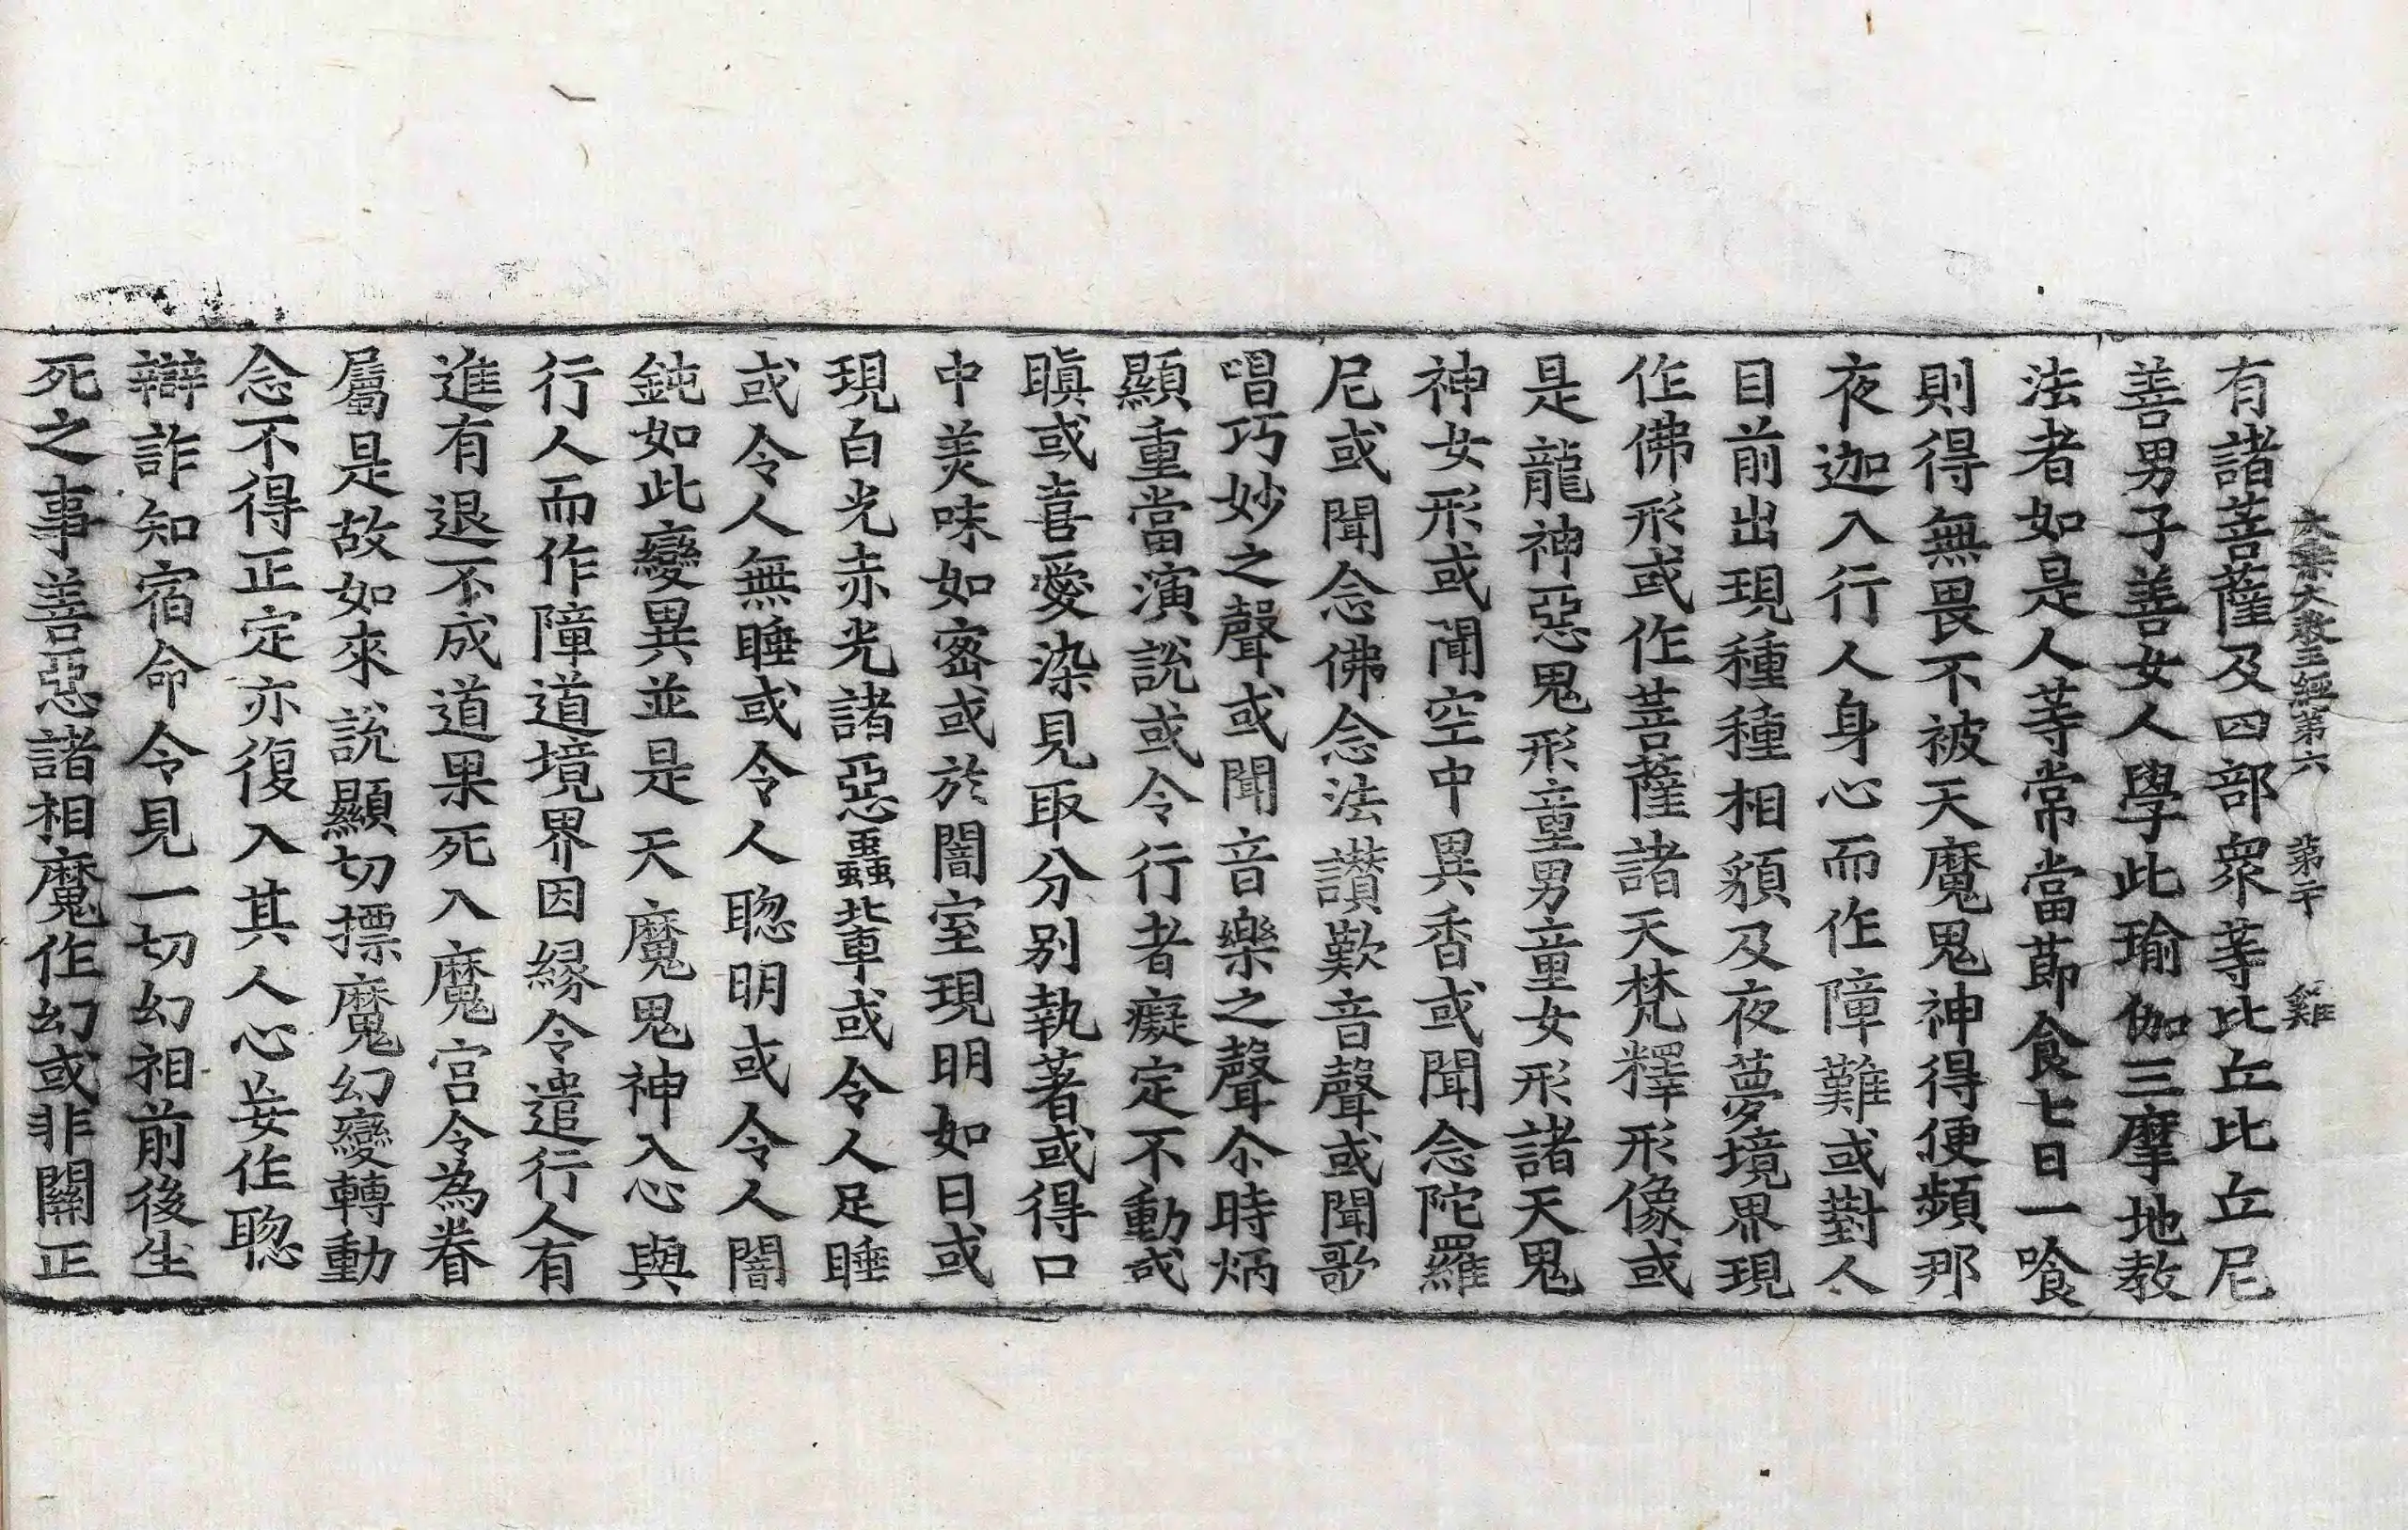 大乘大教王經第六 第二十 雞
有諸菩薩及四部衆等比丘比丘尼
善男子善女人學此瑜伽三摩地教
法者如是人等常當莭食七日一飡
則得無畏不被天魔鬼神得便頻那
夜迦入行人身心而作障難或對人
目前出現種種相貌及夜夢境界現
作佛形或作菩薩諸天梵釋形像或
是龍神惡鬼形童男童女形諸天鬼
神女形或聞空中異香或聞念陀羅
尼或聞念佛念法讃歎音聲或聞歌
唱巧妙之聲或聞音樂之聲尒時炳
顯重當演說或令行者癡定不動或
瞋或喜愛染見取分別執著或得口
中美味如宻或於闇室現明如日或
現白光赤光諸惡蟲軰或令人足睡
或令人無睡或令人聦明或令人闇
鈍如此變異並是天魔鬼神入心與
行人而作障道境界因緣令遣行人有
進有退不成道果死入魔宫令為眷
屬是故如來說顯切摽魔幻變轉動
念不得正定亦復入其人心妄作聦
辯詐知宿命令見一切幻相前後生
死之事善惡諸相魔作幻或非關正